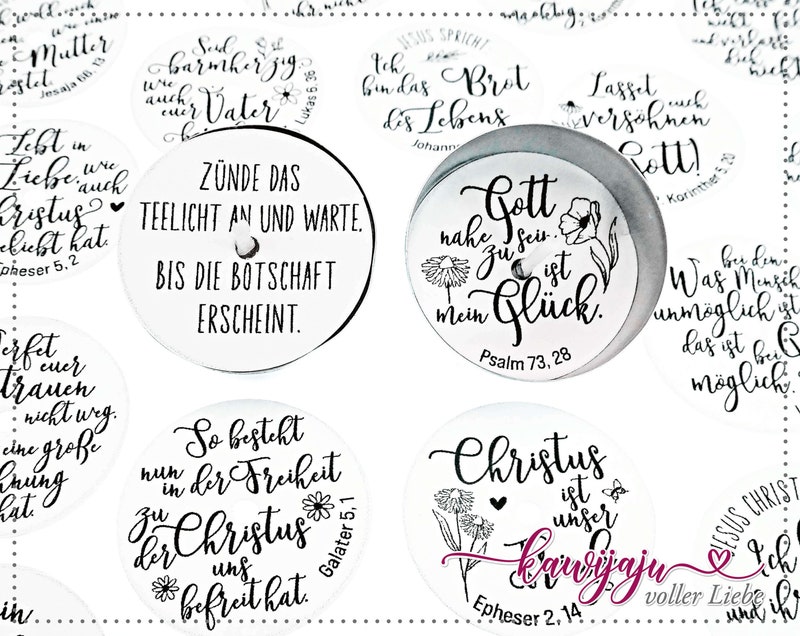 wie
Mutter
tröstet.
Jesaja 66, 13
Seid
barmherzig,
wie
auch
euer Vater
Lukas 6, 36
JESUS SPRICHT
Ich
bin das Brot
des Lebens
Johannes
Lasset
euch
versöhnen
Gott!
Korinther 5, 20
mächtig,
und verlasse
dich nicht
Lebt in
Liebe, wie
auch
Christus
geliebt hat.
Epheser 5, 2
ZÜNDE DAS
TEELICHT AN UND WARTE,
BIS DIE BOTSCHAFT
ERSCHEINT.
Gott
nahe zu sein
ist
mein Glück.
Psalm 73, 28
Was bei den
Menschen
unmöglich ist
das ist bei
Gott
möglich.
Werfet
euer
Vertrauen
nicht weg,
eine große
hat.
So besteht
nun
in der Freiheit
zu
der Christus
uns
befreit hat.
Galater 5, 1
Christus
ist
unser
Epheser 2, 14
JESUS CHRIST
Ich
und ihr
kawijaju
voller Liebe